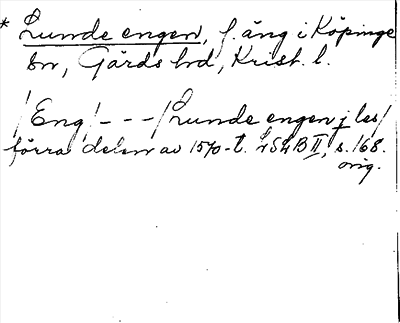 * Lunde engen, f. äng i Köpinge
sn, Gärds hd, Krist. l.
/Eng/ - - - /Lunde engen j les/
förra delen av 1570-t. LSHB II, s. 168.
orig.